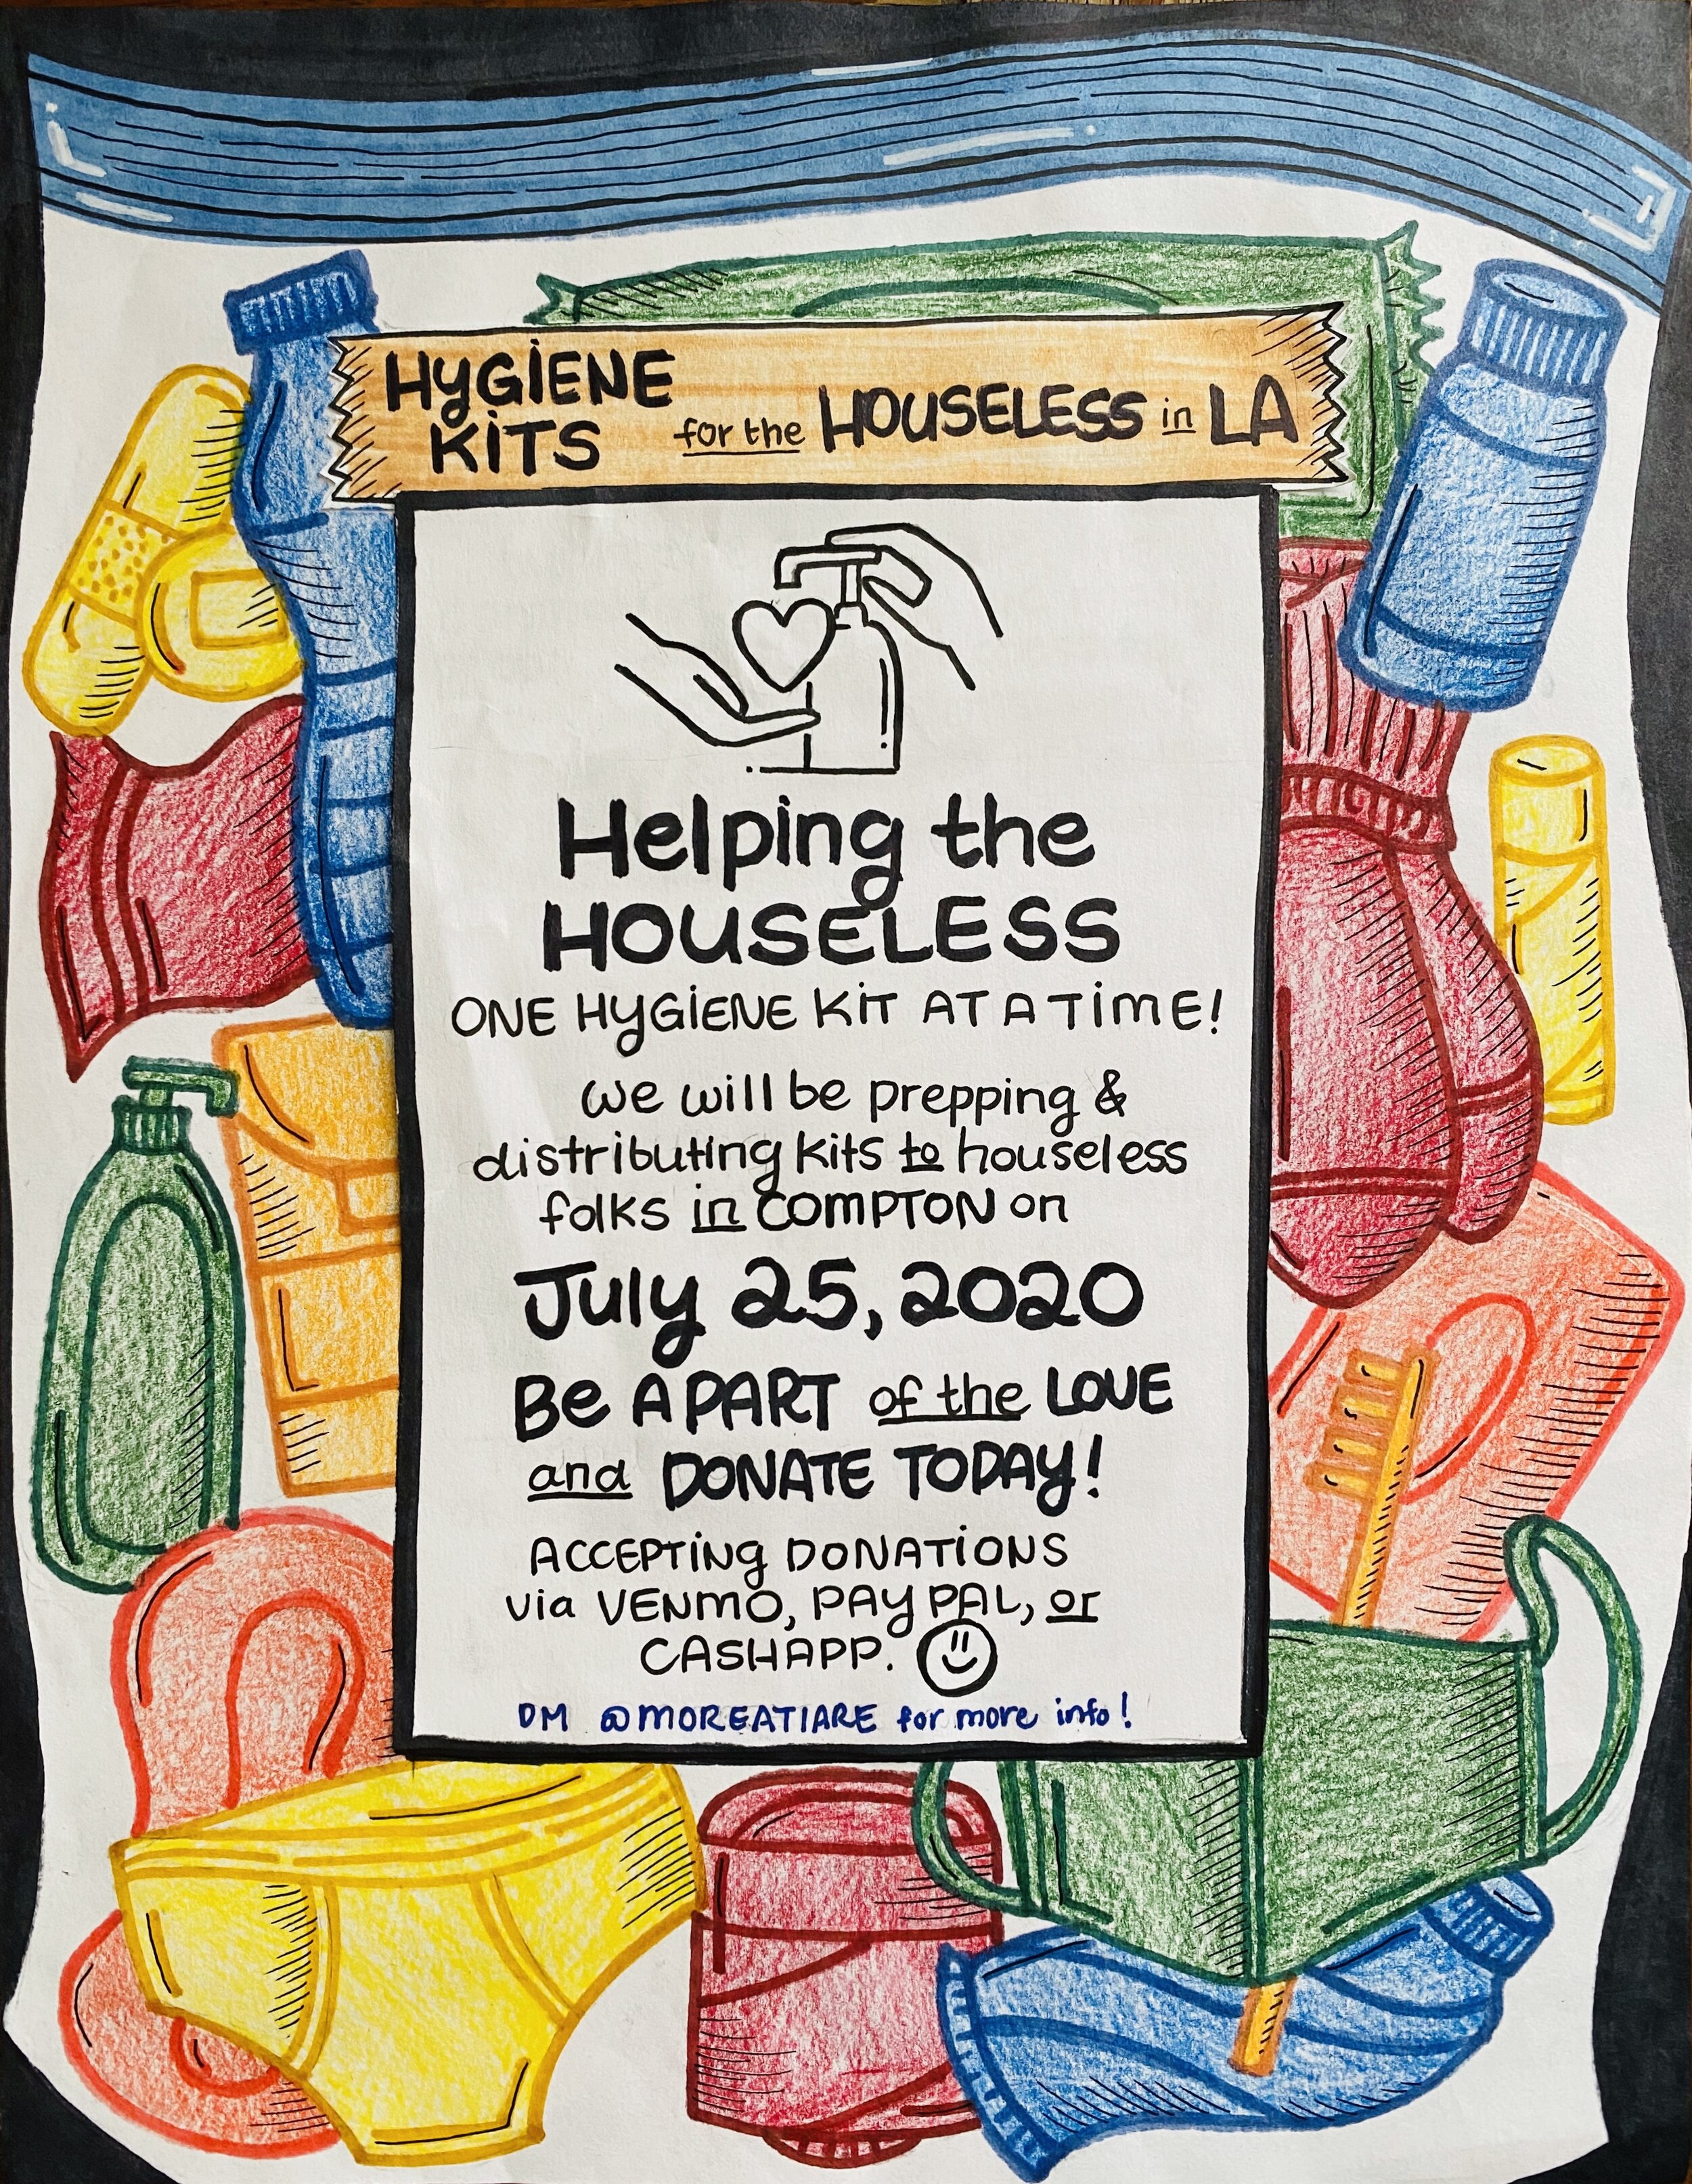 HYGIENE KITS for the HOUSELESS in LA
Helping the
HOUSELESS
ONE HYGIENE KIT AT A TIME!
we will be prepping &
distributing kits to houseless
folks in COMPTON on
July 25, 2020
Be A PART of the LOVE
and DONATE TODAY!
ACCEPTING DONATIONS
via VENMO, PAYPAL, or
CASHAPP.
DM @MOREATIARE for more info!